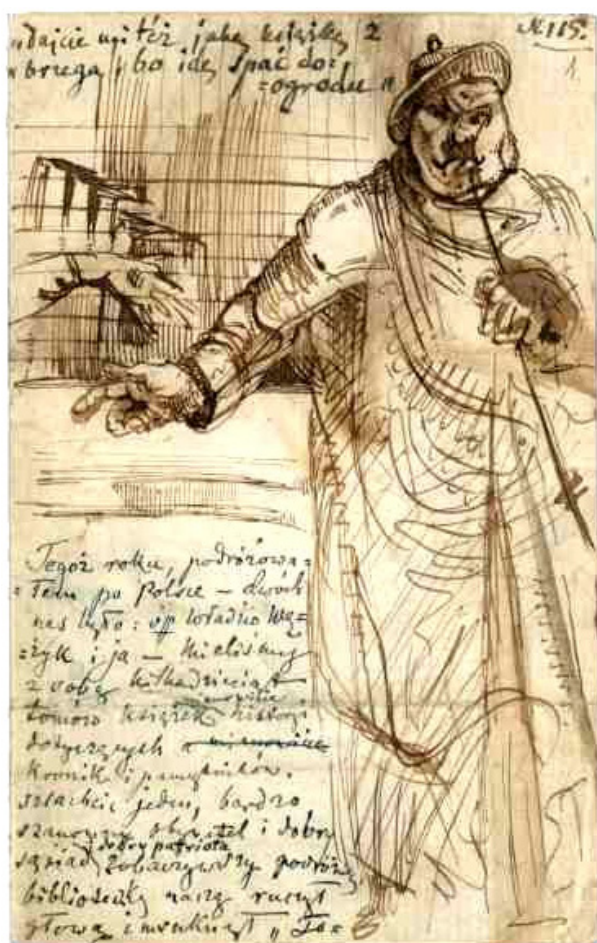 "dajcie mi też jaką książkę z
"brzega, bo idę spać do=
=ogrodu"
N 115.
1.
Tegoż roku, podróżowa=
=łem po Polsce – dwóch
nas było: Władzio Wę=
=żyk i ja – Mieliśmy
z sobą kilkadziesiąt
tomów książek histor.
dotyczących
kronik i pamiętników.
szlachcic jeden, bardzo
szanowny obywatel i dobry
dobry patriota
sąsiad zobaczywszy podróżną
biblioteczkę naszą ruszył
głową i mruknął „To=